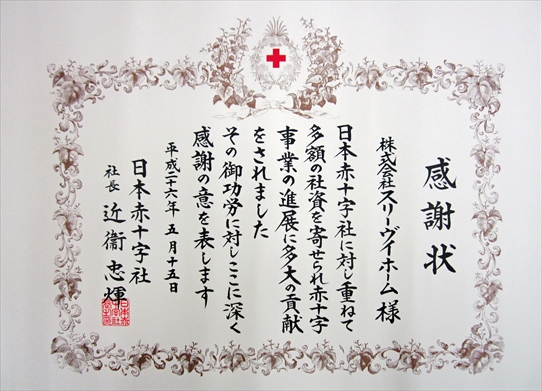 感謝状
株式会社スリーヴイホーム 様
日本赤十字社に対し重ねて
多額の社資を寄せられ赤十字
事業の進展に多大の貢献
をされました
その御功労に対しここに深く
感謝の意を表します
平成二十六年 五月十五日
日本赤十字社
社長 近衞忠煇